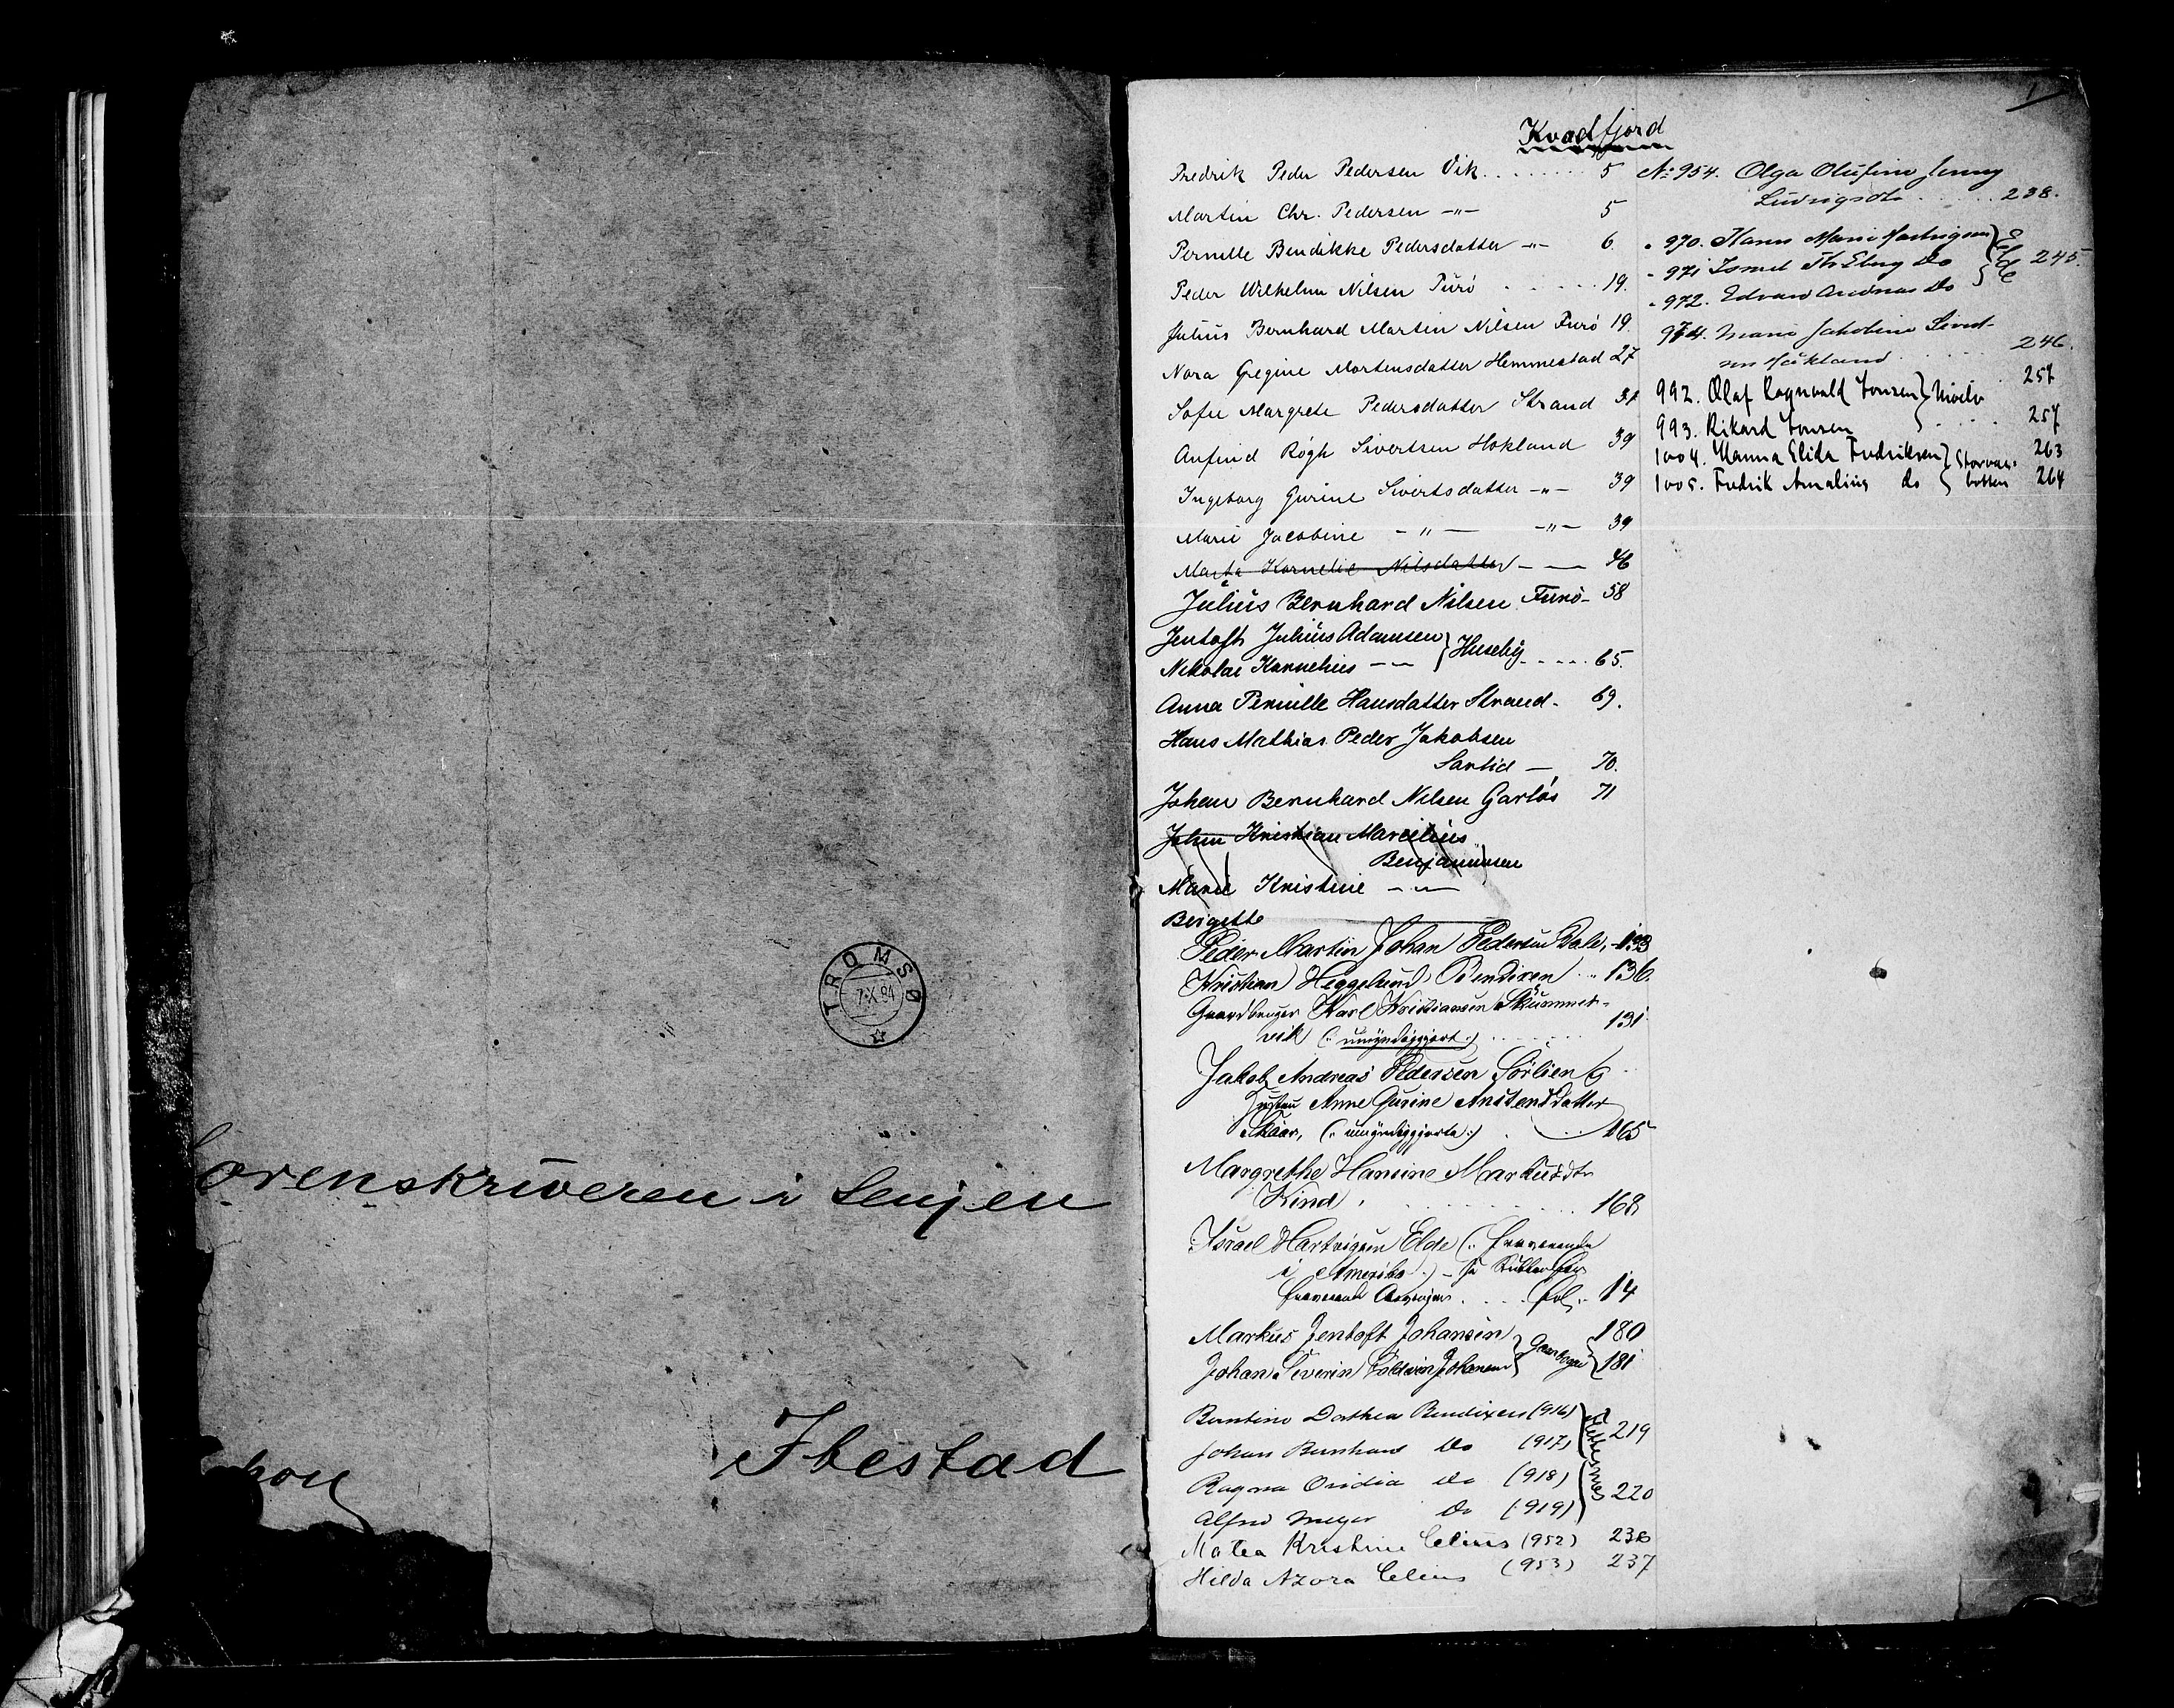 TROMSØ
7.X.84
orenskriveren i Senjen
Ibestad
1
Kvædfjord
Fredrik Peder Pedersen Vik . . . . . . . 5
Martin Chr. Pedersen -"- 5
Pernille Bendikke Pedersdatter -"- 6.
Peder Wilhelm Nilsen Furö . . . . . . 19.
Julius Bernhard Martin Nilsen Furö 19.
Nora Gregine Mortensdatter Hemmestad 27
Sofie Margrete Pedersdatter Strand
Anfind Rögh Sivertsen Hokland 39
Ingeborg Gurine Sivertsdatter -"- 39
Marie Jacobine -"- -"- 39
Marta Kornelie Nilsdatter - — 46
Julius Bernhard Nilsen Furö - 58
Jentoft Julius Adamsen } Huseby - - - - 65.
Nikolai Kornelius - —
Anna Pernille Hansdatter Strand - 69.
Hans Mathias Peder Jakobsen
Sartid — 70.
Johan Bernhard Nilsen Garlös 71
Johan Kristian Marcelius
Benjaminsen
Marie Kristine -"-
Bergette
Peder Martin Johan Pedersen Dale, - 133
Kristian Heggelund Bendixen .. 136.
Gaardbruger Karl Kristiansen Skummer-
vik (: umyndiggjort :) . . . . . 131
Jakob Andreas Pedersen Sörlien
Hustru Anne Gurine Anstensdatter
Skaar, (: umyndiggjorte :) . . . 165
Margrethe Hansine Markusdtr
Kind . . . . . . . . . 168
Israel Hartvigsen Elde (: fraværende
i Amerika :) -
fol. 14
Markus Jentoft Johansen } 180
Johan Severin Johansen } 181
Bentine Dorthea Bendixen (916) } 219
Johan Bernhard do (917)
Ragna Ovidia do (918) } 220
Alfred Meyer do (919)
Matea Kristine Celius (952) 236
Hilda Azora Celius (953) 237
No 954. Olga Olufine Jenny
Ludvigsdtr . . . . . 238.
" 970. Hans Marie Hartvigsen } Elde 245.
" 971 do
" 972. Edvard Andreas do
974. Marie Jakobine Sivert-
sen Høkland . . . . . 246.
992. Olaf Ragnvald Tonsen } . 257
993. Rikard Tonsen . . . . 257
1004. Hanna Elida Fredriksen } Storvas- 263
1005. Fredrik Amalius do } botten 264